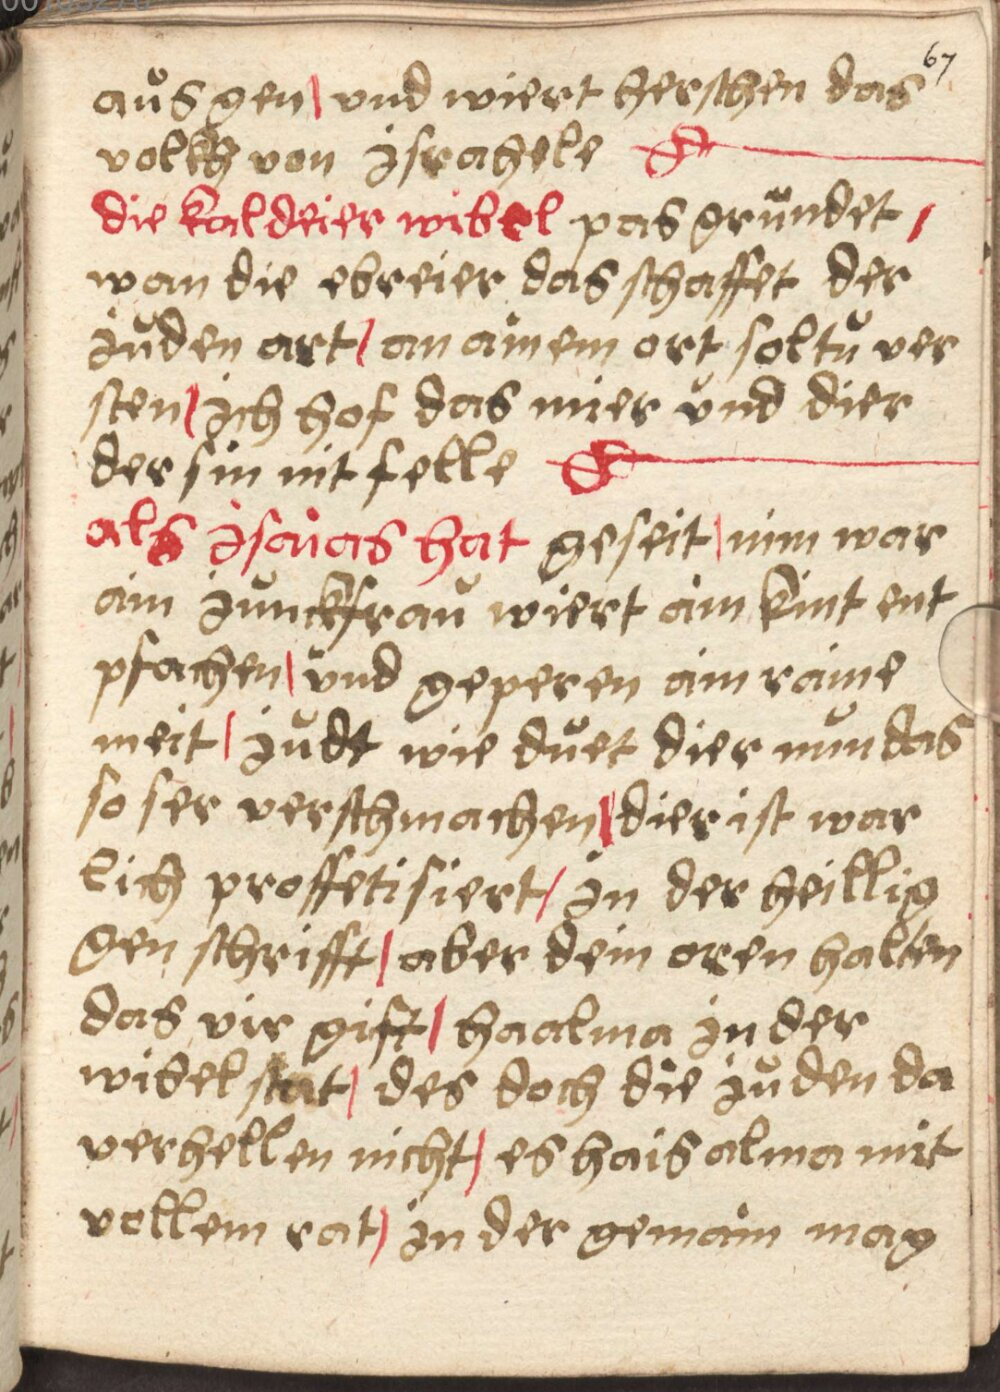 67
aůs gen | vnd wiert herschen das
volkh von jsrahele
die kaldeier wibel pas grůndet /
wan die ebreier das schaffet der
jůden art / an ainem ort soltů ver
sten / jch hof das mier vnd dier
der sin nit felle
als jsaias hat geseit | nim war
ain junckfrau wiert ain kint ent
pfachen | vnd geperen ain raine
meit | jůdt wie důet dier nůn das
so ser verschmachen | dier ist war
lich proffetisiert / jn der heillig
gen schrifft | aber dein oren halten
das vir gift | haalma jn der
wibel stat | des doch die jůden da
verhellen nicht / es hais alma mit
vollem rat / jn der gemain mag